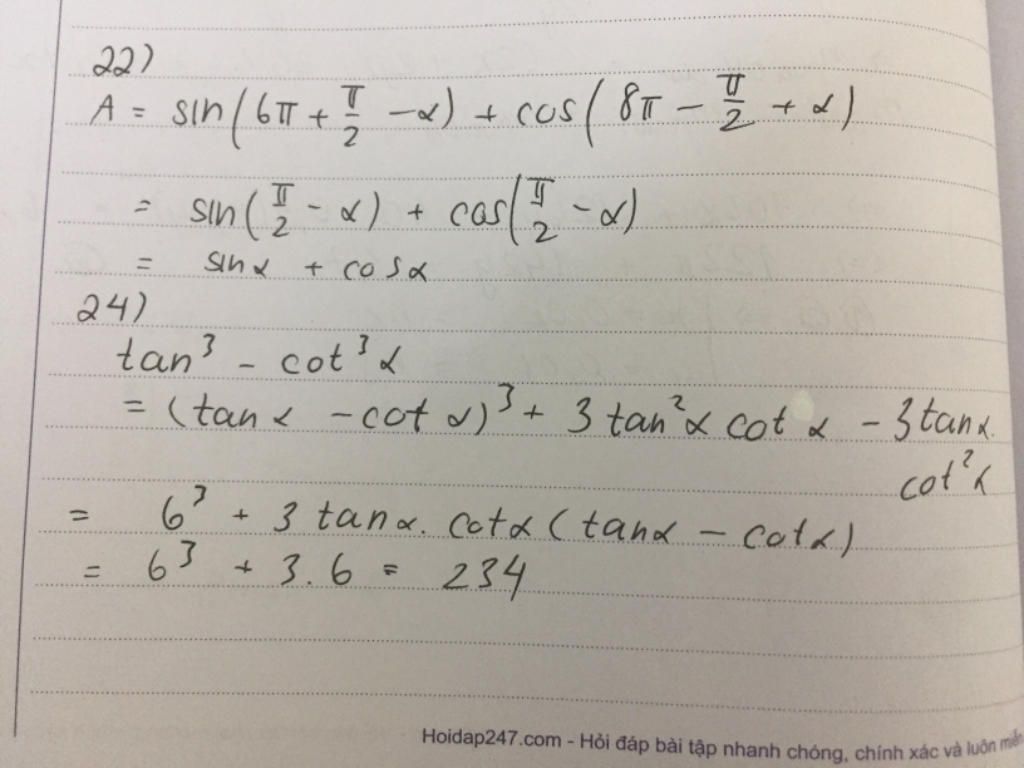 22)
A = sin(6π + π/2 - α) + cos(8π - π/2 + α)
= sin(π/2 - α) + cos(π/2 - α)
= sinα + cosα
24)
tan³ - cot³α
= (tanα - cot α)³ + 3 tan²α cot α - 3tanα.
cot²α
= 6³ + 3 tanα. cotα (tanα - cotα)
= 6³ + 3.6 = 234
Hoidap247.com - Hỏi đáp bài tập nhanh chóng, chính xác và luôn miễn